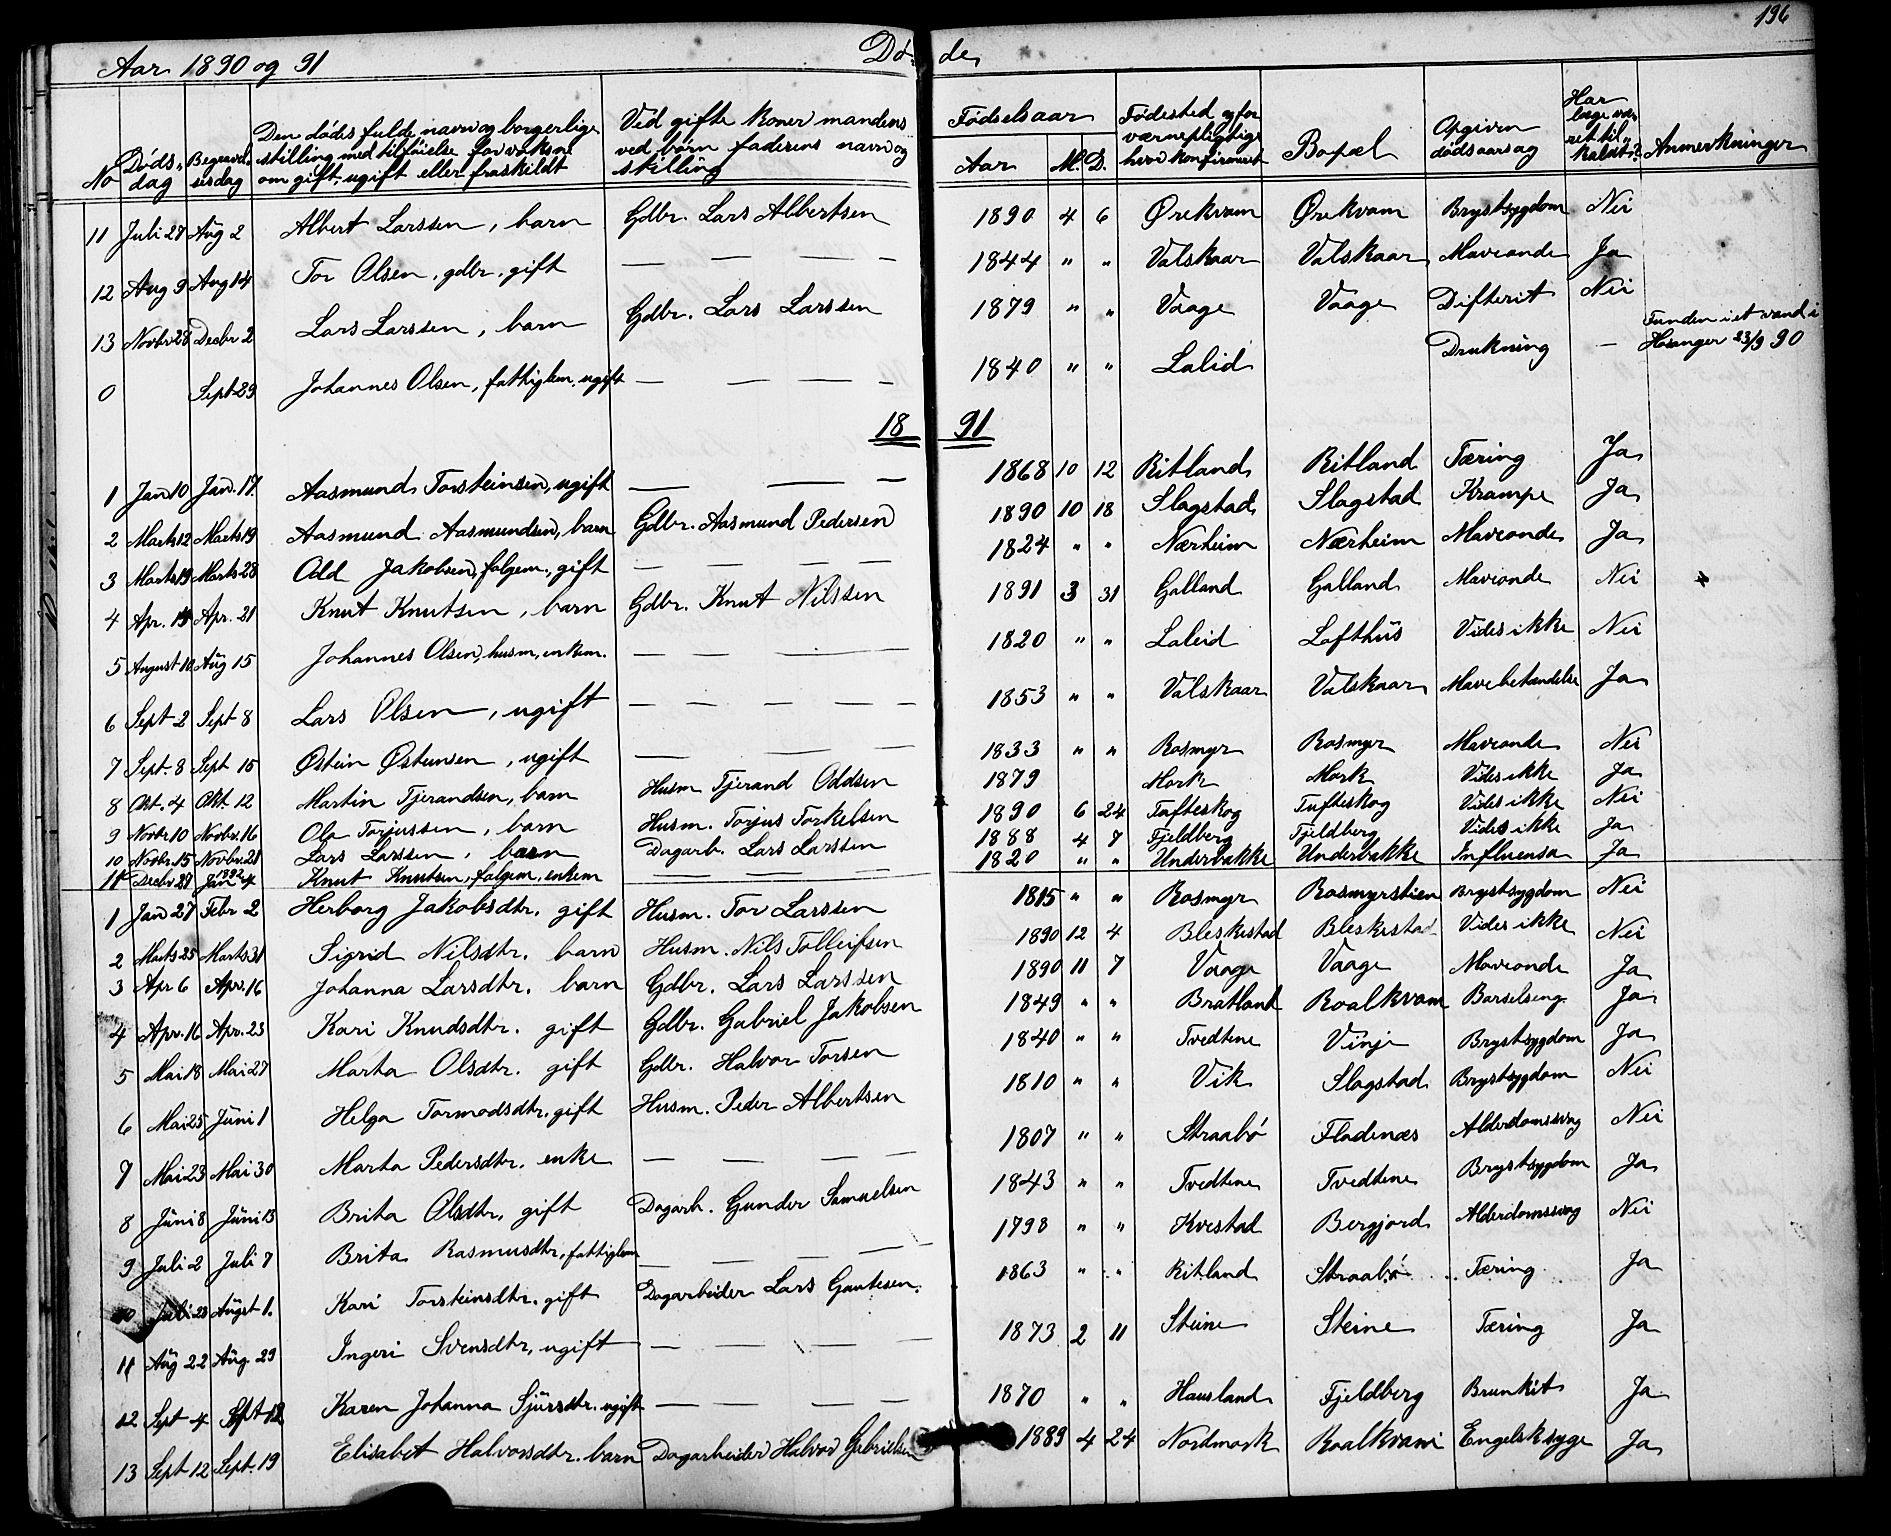 196
Aar 1890 og 91 Dø- de
No Døds- dag Begravel- sesdag Den dødes fulde navn og borgerlige stilling med tilføielse for voksne om gift, ugift eller fraskildt Ved gifte koner mandens ved børn faderens navn og stilling Fødselsaar Aar M. D. Fødested og for værnepligtige hvor konfirmeret Bopæl Opgiven dødsaarsag Har læge væ- ret til- kaldt? Anmerkninger
11 Juli 27 Aug 2 Albert Larssen, barn Gdbr. Lars Albertsen 1890 4 6 Ørekvam Ørekvam Brystsygdom Nei
12 Aug 9 Aug 14 Tor Olsen, gdbr. gift — — — — 1844 " " Valskaar Valskaar Maveonde Ja
13 Novbr 28 Decbr 2 Lars Larssen, barn Gdbr. Lars Larssen 1879 " " Vaage Vaage Difterit Nei
0 Sept 29 Johannes Olsen, fattiglem, ugift — — — — 1840 " " Laleid Drukning — Funden i et vand i Hosanger 23/9 90
18 91
1 Jan 10 Jan. 17. Aasmund Torsteinsen, ugift — — — 1868 10 12 Ritland Ritland Tæring Ja
2 Marts 12 Marts 19 Aasmund Aasmundsen, barn Gdbr. Aasmund Pedersen 1890 10 18 Slagstad Slagstad Krampe Ja
3 Marts 19 Marts 28 Odd Jakobsen, folgem., gift — — — — — 1824 " " Nærheim Nærheim Maveonde Ja
4 Apr. 19 Apr. 21 Knut Knutsen, barn Gdbr. Knut Nilssen 1891 3 31 Galland Galland Maveonde Nei
5 August 10 Aug 15 Johannes Olsen, husm, enkem. — — — — 1820 " " Laleid Lofthus Vides ikke Nei
6 Sept 2 Sept 8 Lars Olsen, ugift — — — — — 1853 " " Valskaar Valskaar Mavebetændelse Ja
7 Sept. 8 Sept 15 Østein Østensen, ugift — — — — 1833 " " Rosmyr Rosmyr Maveonde Nei
8 Okt. 4 Okt. 12 Martin Tjerandsen, barn Husm Tjerand Oddsen 1879 Mork Mork Vides ikke Ja
9 Novbr. 10 Novbr. 16 Ola Torjussen, barn Husm. Torjus Torkelsen 1890 6 24 Tufteskog Tufteskog Vides ikke Nei
10 Novbr. 15 Novbr. 21 Lars Larssen, barn Dagarb. Lars Larssen 1888 4 7 Fjeldberg Fjeldberg Vides ikke Ja
11 Decbr 29 1892 Jan 4 Knut Knutsen, folgem, enkem — — — — 1820 " " Underbakke Underbakke Influensa Ja
1 Jan 27 Febr 2 Herborg Jakobsdtr. gift Husm. Tor Larssen 1815 " " Rosmyr Rosmyrstien Brystsygdom Nei
2 Marts 25 Marts 31 Sigrid Nilsdtr. barn Husm. Nils Tolleifsen 1890 12 4 Bleskestad Bleskestad Vides ikke Nei
3 Apr 6 Apr. 16 Johanna Larsdtr. barn Gdbr. Lars Larssen 1890 11 7 Vaage Vaage Maveonde Ja
4 Apr. 16 Apr. 23 Kari Knudsdtr. gift Gdbr. Gabriel Jakobsen 1849 " " Bratland Roalkvam Barselseng. Ja
5 Mai 18 Mai 27 Marta Olsdtr. gift Gdbr. Halvor Torsen 1840 " " Tvedtene Vinje Brystsygdom Ja
6 Mai 25 Juni 1 Helga Tormodsdtr. gift Husm. Peder Albertsen 1810 " " Vik Slagstad Brystsygdom Nei
7 Mai 23 Mai 30 Marta Pedersdtr. enke — — — — 1807 " " Straabø Fladenæs Alderdomssvag Nei
8 Juni 8 Juni 13 Brita Olsdtr, gift Dagarb. Gunder Samuelsen 1843 " " Tvedtene Tvedtene Brystsygdom Ja
9 Juli 2 Juli 7 Brita Rasmusdtr, fattiglem — — — — 1798 " " Kvestad Bergjord Alderdomssvag Nei
10 Juli 23 Augst 1. Kari Torsteinsdtr. gift Dagarbeider Lars Gautesen. 1863 " " Ritland Straabø Tæring Ja
11 Aug 22 Aug. 29 Ingeri Svensdtr, ugift — — — — 1873 2 11 Steine Steine Tæring Ja
12 Sept 4 Sept 12 Karen Johanna Sjursdtr. ugift — — — — 1870 " " Hausland Fjeldberg Brunkit Ja
13 Sept 12 Sept. 19 Elisabet Halvorsdtr. barn Dagarbeider Halvor Gabrielsen 1889 4 24 Nordmork Roalkvam Engelsksyge Ja